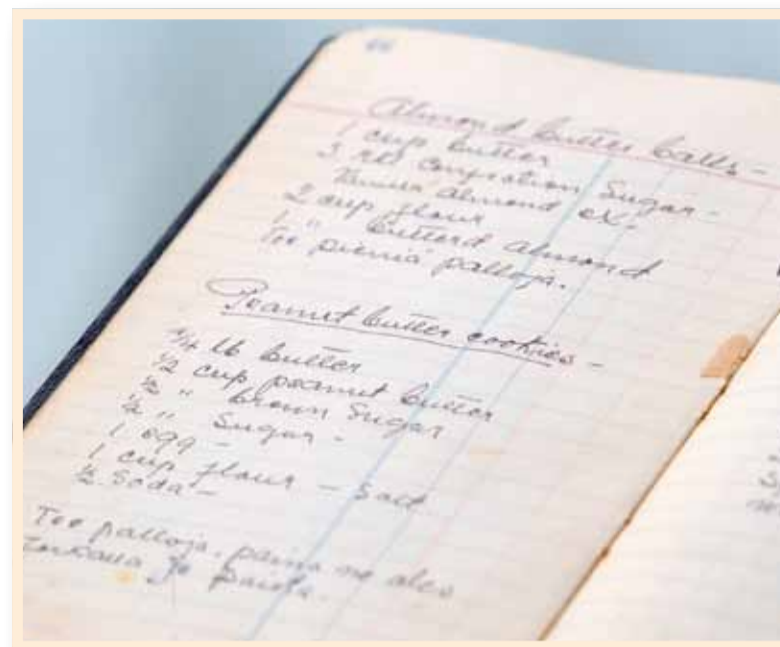 Almond butter balls -
1 cup butter
3 Sugar -
Almond ex.
2 cup flour
1 " almond
Tee pieniä palloja.
Peanut butter cookies -
1/4 lb butter
1/2 cup peanut butter
1/2 " brown Sugar
1/2 " Sugar -
1 egg -
1 cup flour - Salt
1/2 Soda -
Tee palloja, paina ne alas
ja paista.